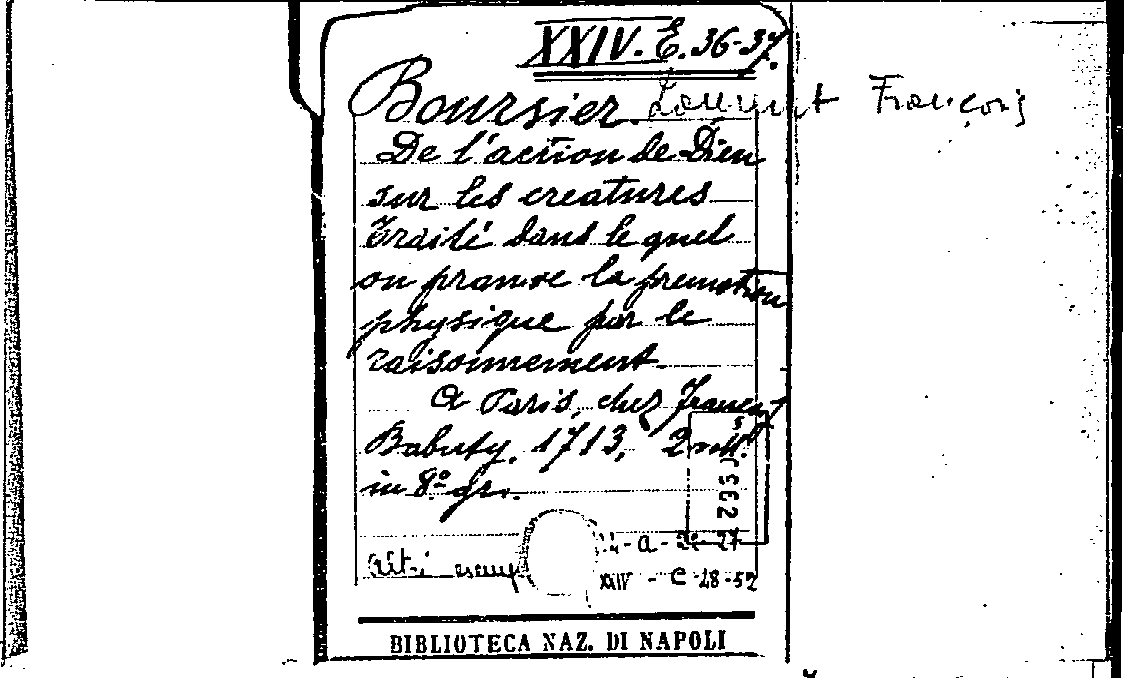 XXIV. E. 36-37.
Boursier. Laurent François
De l'action de Dieu
sur les creatures
Traité dans le quel
on prouve la premotion
physique par le
raisonnement
A Paris, chez François
Babuty, 1713, 2 voll.
in 8º gr.
Altri esemp
A - 26-27
XXIV - C - 28-52
BIBLIOTECA NAZ. DI NAPOLI